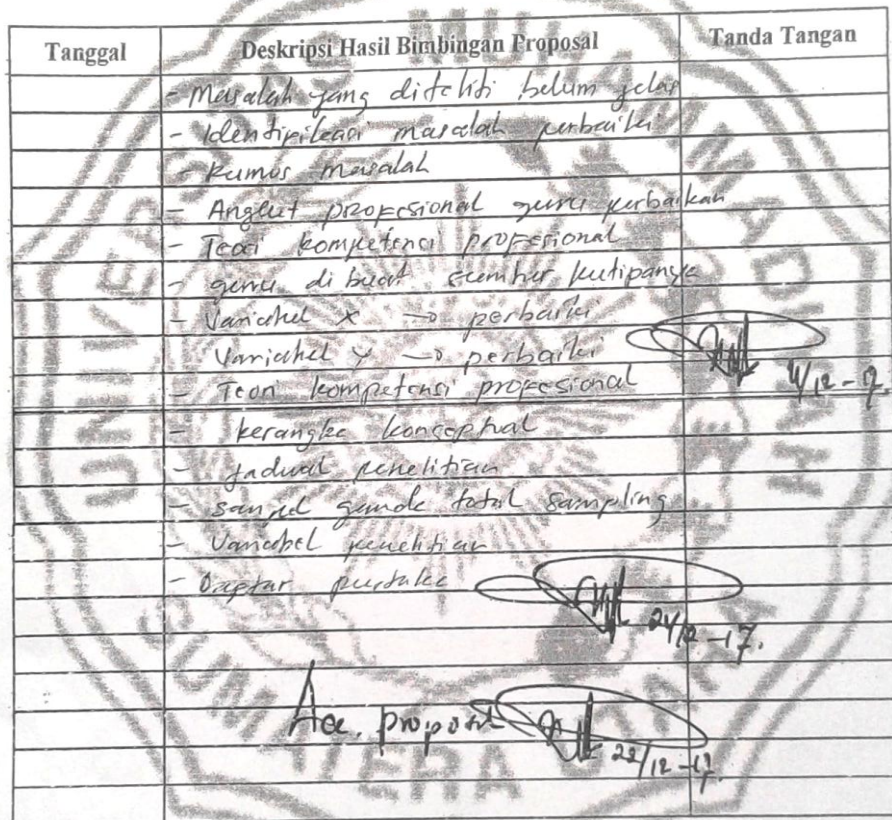 Tanggal Deskripsi Hasil Bimbingan Proposal Tanda Tangan
- Masalah yang diteliti belum jelas
- Identipikasi masalah perbaiki
- Rumus masalah
- Angket propesional guru perbaikan
- Teori kompetensi propesional
- guru di buat sumber kutipanya
- Variabel X → perbaiki
Variabel y → perbaiki
- Teori kompetensi propesional
4/12-17
- kerangka konseptual
- Jadwal penelitian
- sampel total sampling
- Variabel penelitian
- Daptar pustaka
/12-17.
Acc. proposal
22/12-17.
UNIVERSITAS MUHAMMADIYAH
SUMATERA UTARA